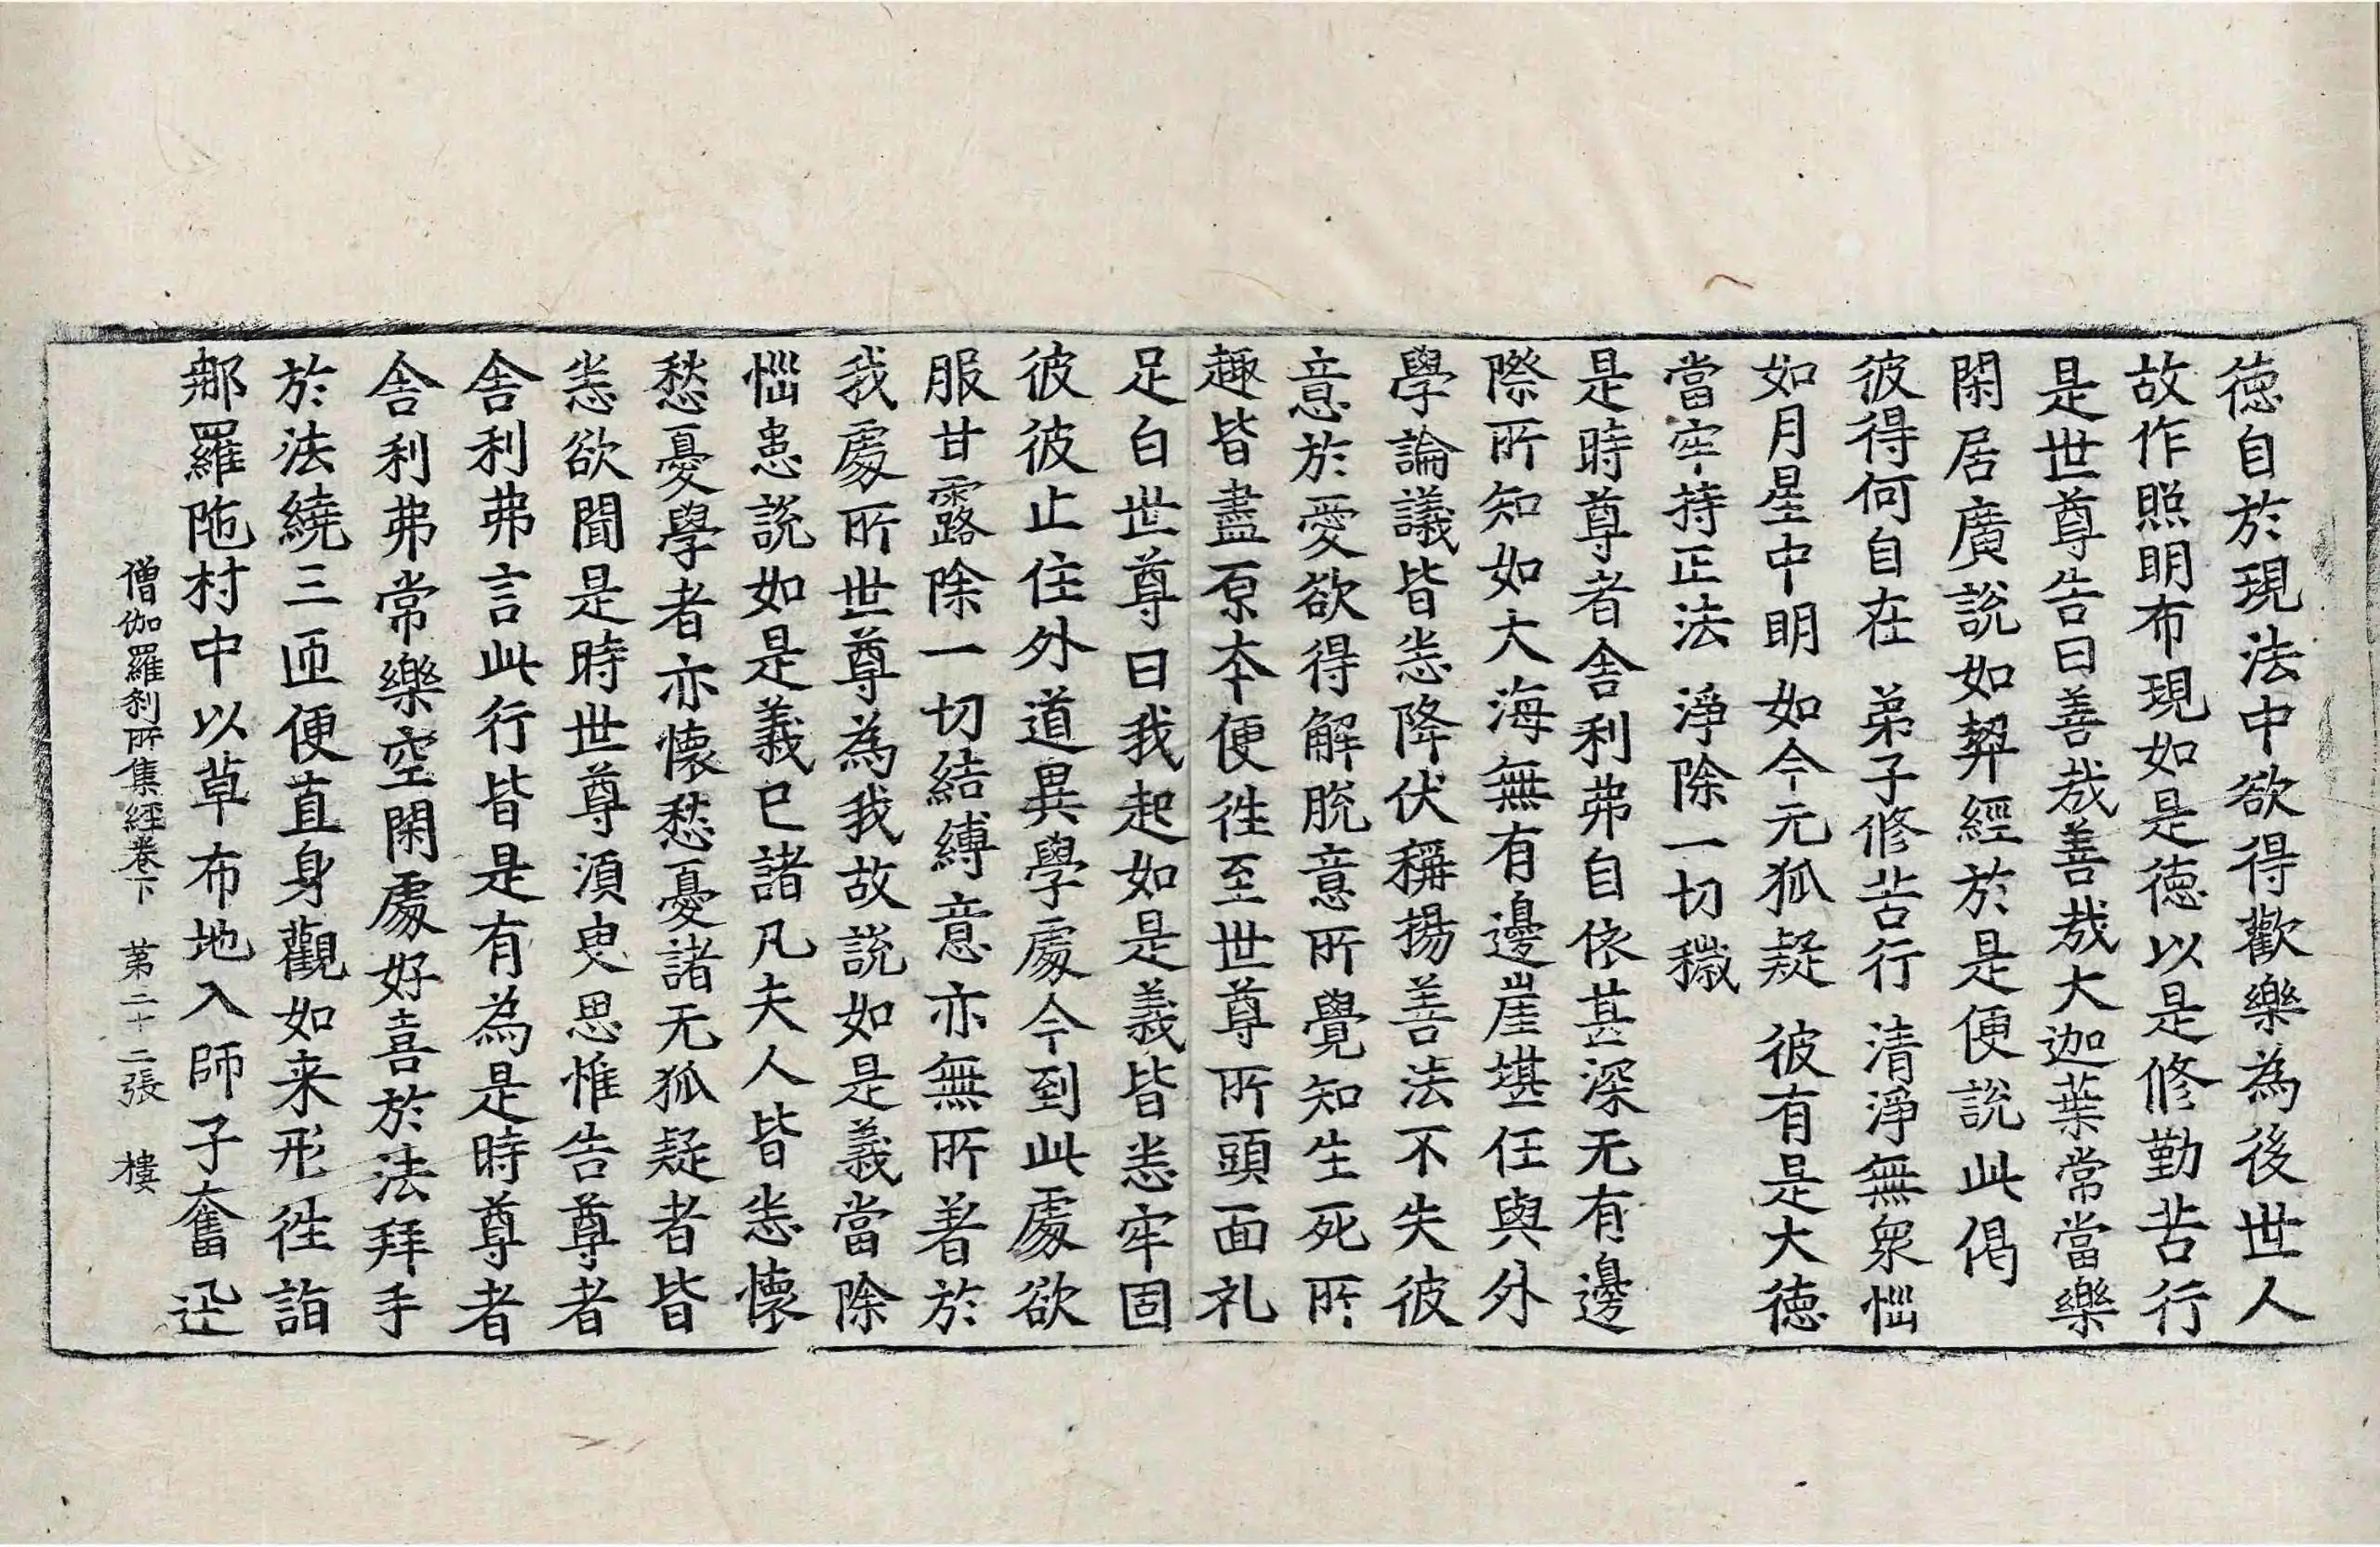 德自於現法中欲得歡樂為後世人
故作照明布現如是德以是修勤苦行
是世尊告曰善哉善哉大迦葉常當樂
閑居廣說如契經於是便說此偈
彼得何自在　弟子修苦行　清淨無衆惱
如月星中明　如今无狐疑　彼有是大德
當牢持正法　淨除一切穢
是時尊者舍利弗自依甚深无有邊
際所知如大海無有邊崖堪任與外
學論議皆悉降伏稱揚善法不失彼
意於愛欲得解脫意所覺知生死所
趣皆盡原本便往至世尊所頭面礼
足白世尊曰我起如是義皆悉牢固
彼彼止住外道異學處今到此處欲
服甘露除一切結縛意亦無所著於
我處所世尊為我故說如是義當除
惱患說如是義已諸凡夫人皆悉懷
愁憂學者亦懷愁憂諸无狐疑者皆
悉欲聞是時世尊須臾思惟告尊者
舍利弗言此行皆是有為是時尊者
舍利弗常樂空閑處好喜於法拜手
於法繞三匝便直身觀如来形往詣
那羅陁村中以草布地入師子奮迅
僧伽羅刹所集經卷下　第二十二張　樓